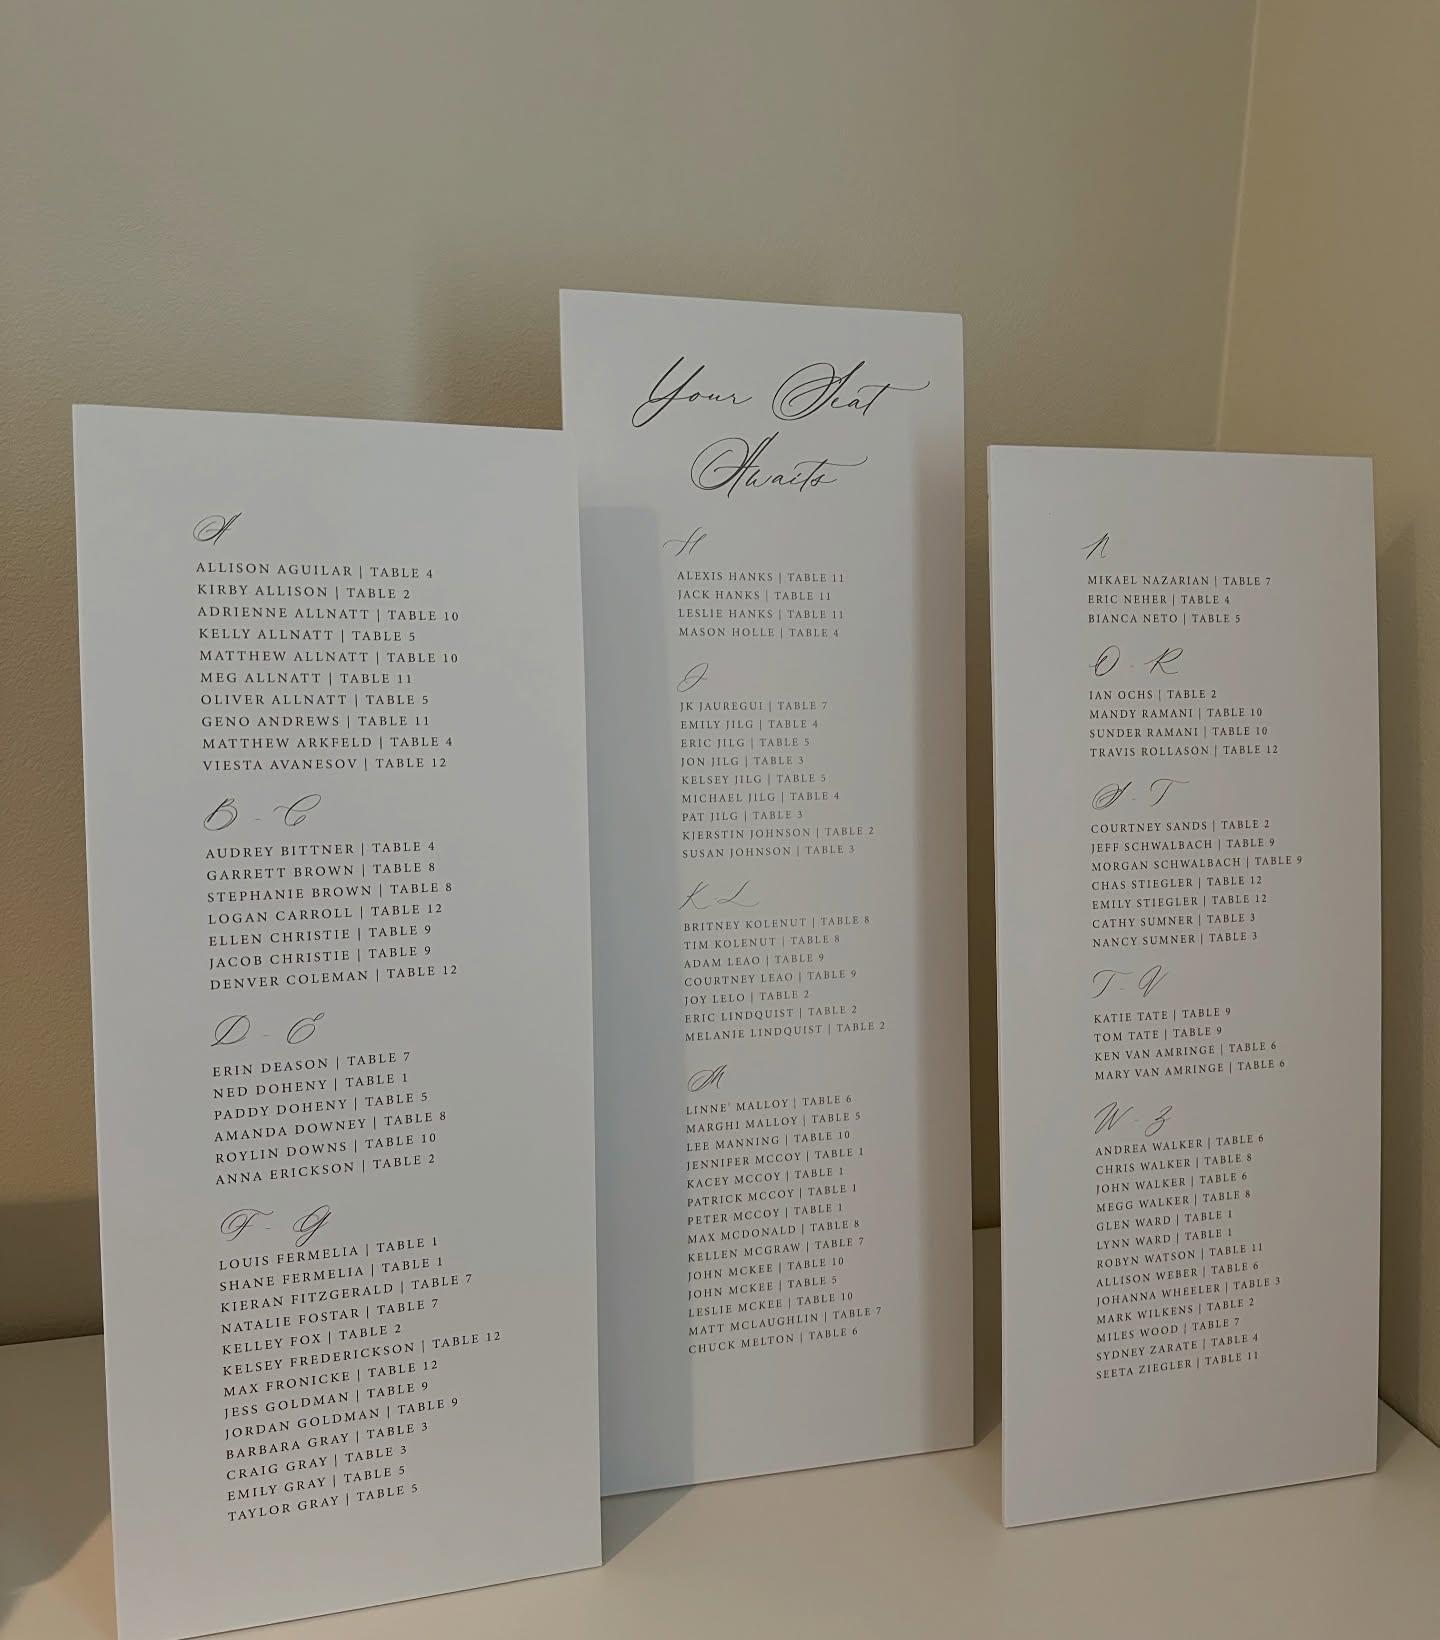 A
ALLISON AGUILAR | TABLE 4
KIRBY ALLISON | TABLE 2
ADRIENNE ALLNATT | TABLE 10
KELLY ALLNATT | TABLE 5
MATTHEW ALLNATT | TABLE 10
MEG ALLNATT | TABLE 11
OLIVER ALLNATT | TABLE 5
GENO ANDREWS | TABLE 11
MATTHEW ARKFELD | TABLE 4
VIESTA AVANESOV | TABLE 12
B - C
AUDREY BITTNER | TABLE 4
GARRETT BROWN | TABLE 8
STEPHANIE BROWN | TABLE 8
LOGAN CARROLL | TABLE 12
ELLEN CHRISTIE | TABLE 9
JACOB CHRISTIE | TABLE 9
DENVER COLEMAN | TABLE 12
D - E
ERIN DEASON | TABLE 7
NED DOHENY | TABLE 1
PADDY DOHENY | TABLE 5
AMANDA DOWNEY | TABLE 8
ROYLIN DOWNS | TABLE 10
ANNA ERICKSON | TABLE 2
F - G
LOUIS FERMELIA | TABLE 1
SHANE FERMELIA | TABLE 1
KIERAN FITZGERALD | TABLE 7
NATALIE FOSTAR | TABLE 7
KELLEY FOX | TABLE 2
KELSEY FREDERICKSON | TABLE 12
MAX FRONICKE | TABLE 12
JESS GOLDMAN | TABLE 9
JORDAN GOLDMAN | TABLE 9
BARBARA GRAY | TABLE 3
CRAIG GRAY | TABLE 3
EMILY GRAY | TABLE 5
TAYLOR GRAY | TABLE 5
Your Seat
Awaits
H
ALEXIS HANKS | TABLE 11
JACK HANKS | TABLE 11
LESLIE HANKS | TABLE 11
MASON HOLLE | TABLE 4
J
JK JAUREGUI | TABLE 7
EMILY JILG | TABLE 4
ERIC JILG | TABLE 5
JON JILG | TABLE 3
KELSEY JILG | TABLE 5
MICHAEL JILG | TABLE 4
PAT JILG | TABLE 3
KJERSTIN JOHNSON | TABLE 2
SUSAN JOHNSON | TABLE 3
K - L
BRITNEY KOLENUT | TABLE 8
TIM KOLENUT | TABLE 8
ADAM LEAO | TABLE 9
COURTNEY LEAO | TABLE 9
JOY LELO | TABLE 2
ERIC LINDQUIST | TABLE 2
MELANIE LINDQUIST | TABLE 2
M
LINNE' MALLOY | TABLE 6
MARGHI MALLOY | TABLE 5
LEE MANNING | TABLE 10
JENNIFER MCCOY | TABLE 1
KACEY MCCOY | TABLE 1
PATRICK MCCOY | TABLE 1
PETER MCCOY | TABLE 1
MAX MCDONALD | TABLE 8
KELLEN MCGRAW | TABLE 7
JOHN MCKEE | TABLE 10
JOHN MCKEE | TABLE 5
LESLIE MCKEE | TABLE 10
MATT MCLAUGHLIN | TABLE 7
CHUCK MELTON | TABLE 6
N
MIKAEL NAZARIAN | TABLE 7
ERIC NEHER | TABLE 4
BIANCA NETO | TABLE 5
O - R
IAN OCHS | TABLE 2
MANDY RAMANI | TABLE 10
SUNDER RAMANI | TABLE 10
TRAVIS ROLLASON | TABLE 12
S - T
COURTNEY SANDS | TABLE 2
JEFF SCHWALBACH | TABLE 9
MORGAN SCHWALBACH | TABLE 9
CHAS STIEGLER | TABLE 12
EMILY STIEGLER | TABLE 12
CATHY SUMNER | TABLE 3
NANCY SUMNER | TABLE 3
T - V
KATIE TATE | TABLE 9
TOM TATE | TABLE 9
KEN VAN AMRINGE | TABLE 6
MARY VAN AMRINGE | TABLE 6
W - Z
ANDREA WALKER | TABLE 6
CHRIS WALKER | TABLE 8
JOHN WALKER | TABLE 6
MEGG WALKER | TABLE 8
GLEN WARD | TABLE 1
LYNN WARD | TABLE 1
ROBYN WATSON | TABLE 11
ALLISON WEBER | TABLE 6
JOHANNA WHEELER | TABLE 3
MARK WILKENS | TABLE 2
MILES WOOD | TABLE 7
SYDNEY ZARATE | TABLE 4
SEETA ZIEGLER | TABLE 11